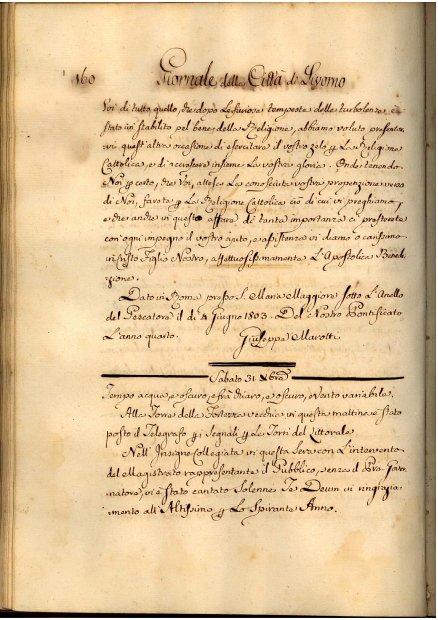 160 Giornale della Città di Livorno
Voi di tutto quello, che dopo le furiose tempeste delle turbolenze è
stato in stabilito pel bene della Religione, abbiamo voluto presentar
vi quest'altra occasione di esercitare il vostro zelo p la Religione
Cattolica, e di accrescere insieme la vostra gloria. Onde tenendo
Noi p certo, che Voi, attesa la conosciuta vostra propenzione verso
di Noi, farete p la Religione Cattolica ciò di cui vi preghiamo,
e che anche in questo affare di tanta importanza ci presterete
con ogni impegno il vostro ajuto, e assistenza vi diamo o carissimo
in Cristo Figlio Nostro, affettuosissimamente l'Apostolica Bened
izione.
Dato in Roma presso S. Maria Maggiore sotto l'Anello
del Pescatore il dì 4 Giugno 1803. Del Nostro Pontificato
l'anno quarto. Giuseppe Marotti
Sabato 31 Xbre
Tempo acqua, e oscuro, e frà chiaro, e oscuro, e Vento variabile.
Alla Torre della Fortezza vecchia in questa mattina è stato
posto il Telegrafo p i Segnali p le Torri del Littorale.
Nell'Insigne Collegiata in questa Sera con l'intervento
del Magistrato rappresentante il Pubblico, senza il Gover
natore, vi è stato cantato Solenne Te Deum in ringrazia
mento all'Altissimo p lo Spirante Anno.